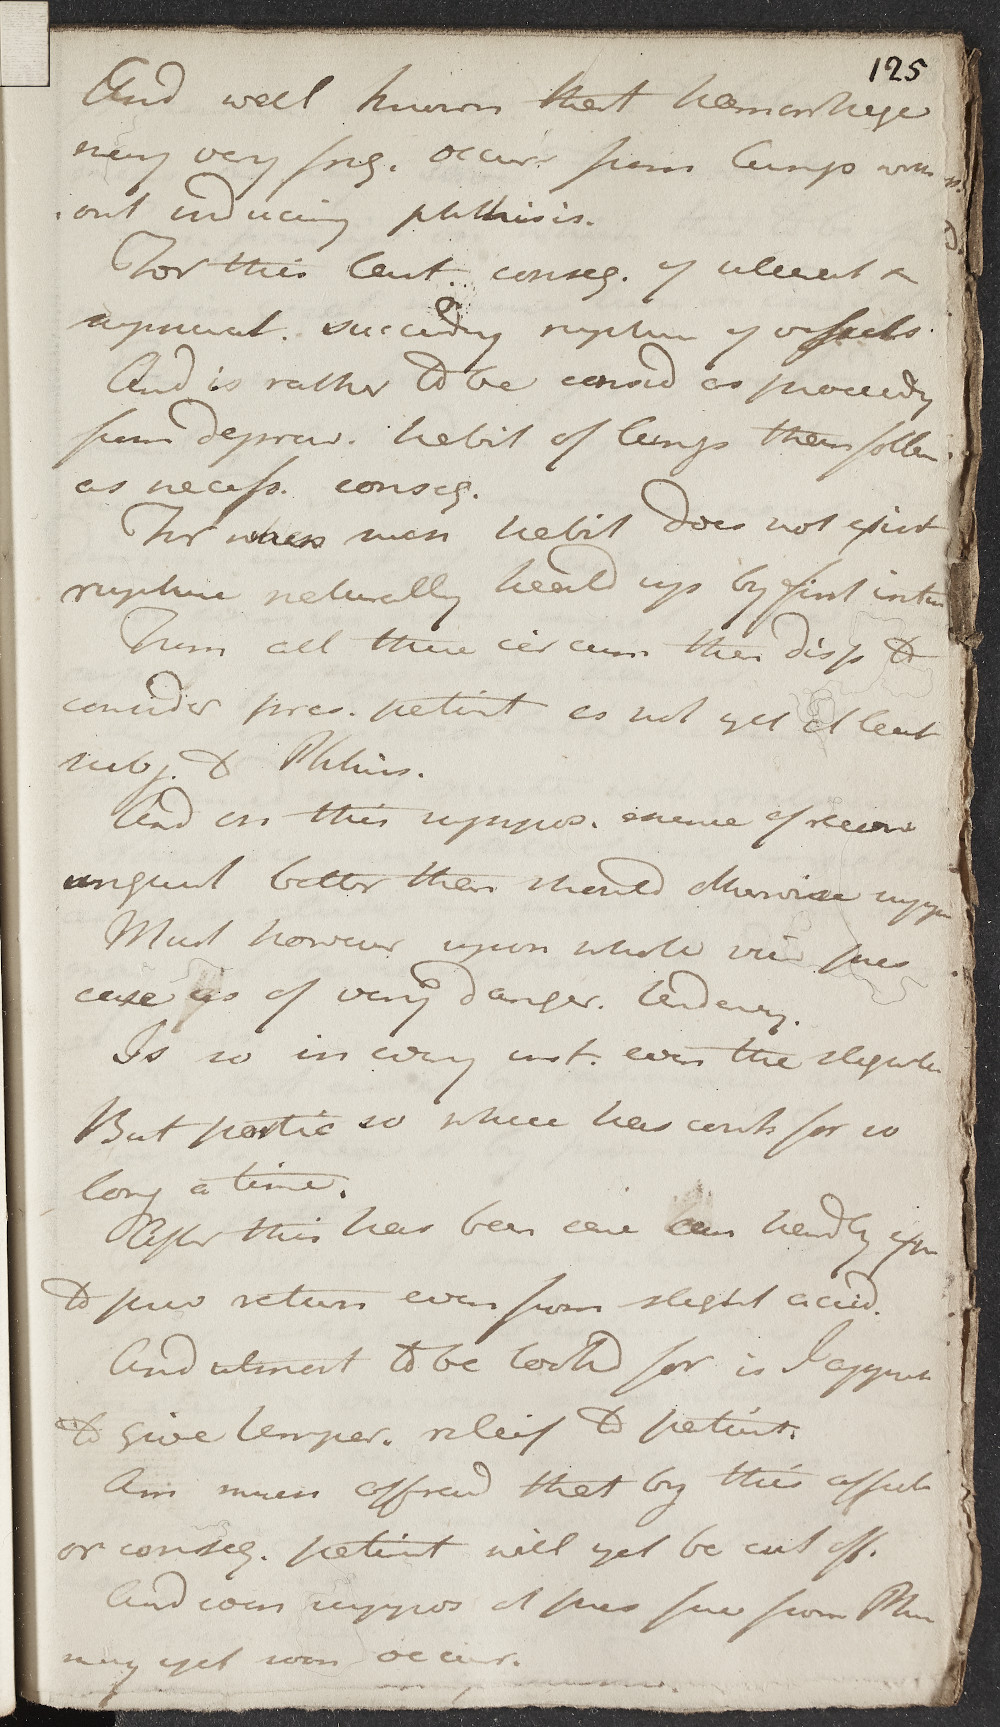 125
And well known that hemorrhage
may very freq. occur from lungs with
out inducing phthisis.
For this last conseq. of ulcerat &
suppurat. succeedg rupture of vessels
And is rather to be consid as proceedg
from deprav. habit of lungs than follow
as necess. conseq.
For when such habit does not exist
rupture naturally heald up by first inten
From all these circum then disp to
consider pres. patient as not yet at least
subj. to Phthis.
And on this suppos. chance of recov
much better than should otherwise suppo
Must however upon whole view pres
case as of very danger. tendency.
Is so in every inst. even the slightes
But partic so where has cont for so
long a time.
After this has been case can hardly expe
to prev return even from slight accid.
And utmost to be lookd for is I appreh
to give temper. releif to patient.
Am much affraid that by this affect
or conseq. patient will yet be cut off.
And even suppos at pres free from Phth
may yet soon occur.